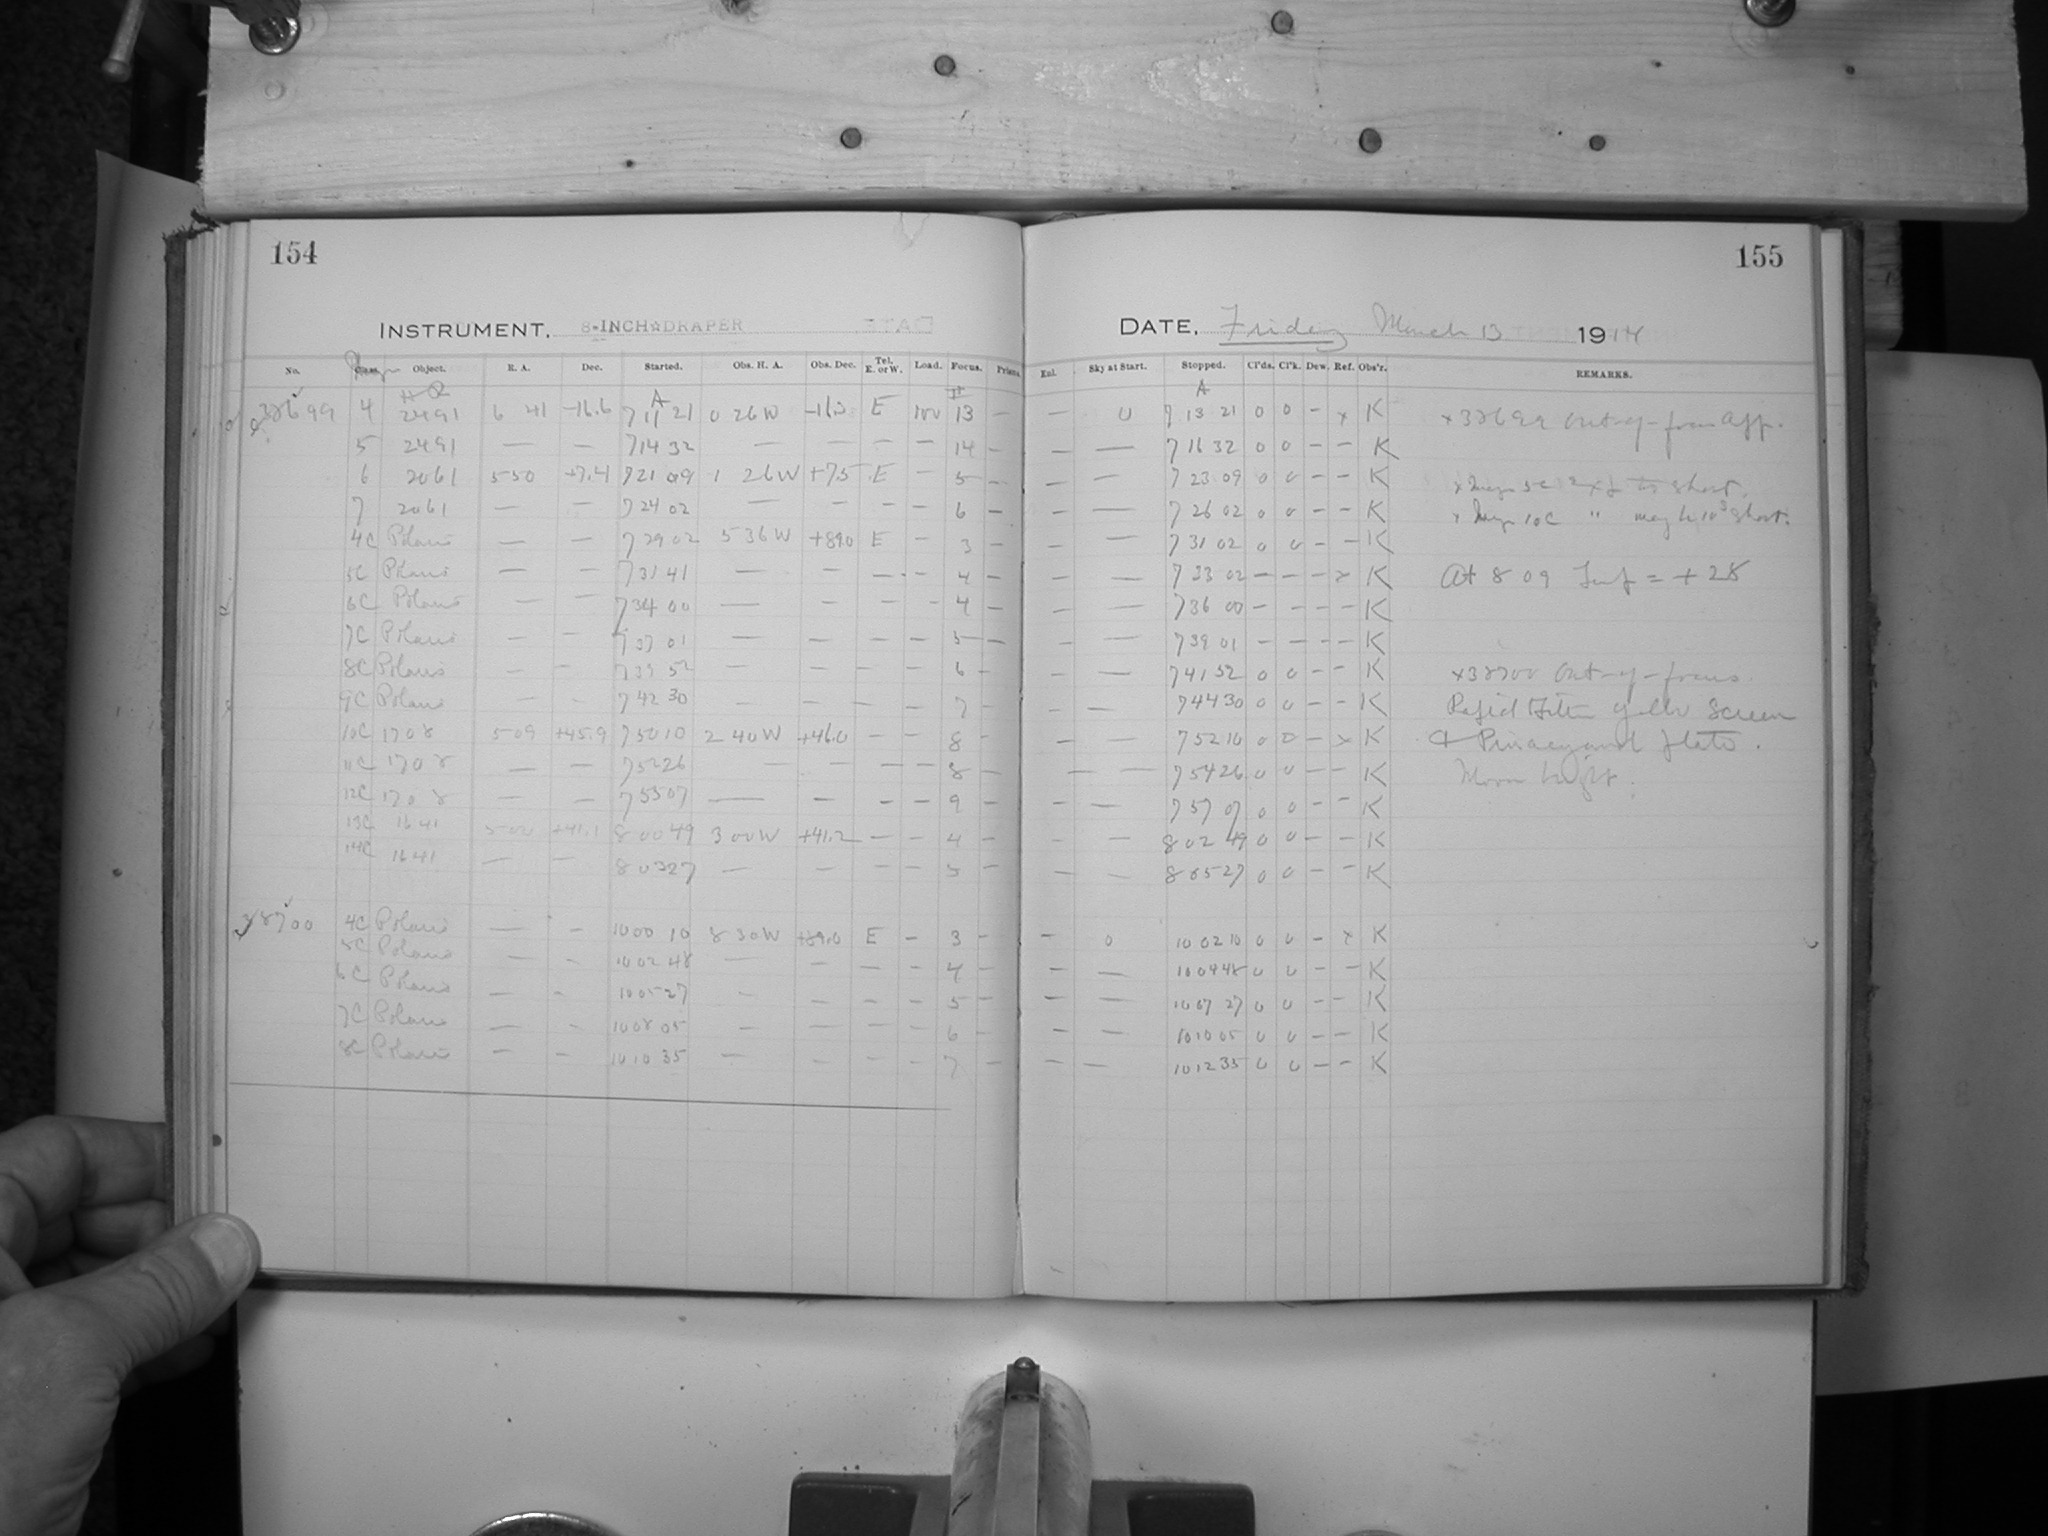 154
155
INSTRUMENT. 8-INCH☆DRAPER
DATE. Friday March 13 1914
No. Object. R. A. Dec. Started. Obs. H. A. Obs. Dec. Tel. E. or W. Load. Focus. Prisms.
Enl. Sky at Start. Stopped. Cl'ds. Cl'k. Dew. Ref. Obs'r. REMARKS.
4 2491 6 41 -16.6 7 11 21 0 26 W E 13 — — 0 7 13 21 0 0 — x K
5 2491 — — 7 14 32 — — — — 14 — — — 7 16 32 0 0 — — K
6 2061 5 50 +7.4 7 21 09 1 26 W +7.5 E — 5 — — — 7 23 09 0 0 — — K
7 2061 — — 7 24 02 — — — — 6 — — — 7 26 02 0 0 — — K
4C Polaris — — 7 29 02 5 36 W +89.0 E — 3 — — — 7 31 02 0 0 — — K
5C Polaris — — 7 31 41 — — — — 4 — — — 7 33 02 — — — x K At 8 09 = +28
6C Polaris — — 7 34 00 — — — — 4 — — — 7 36 00 — — — — K
7C Polaris — — 7 37 01 — — — — 5 — — — 7 39 01 — — — — K
8C Polaris — — 7 39 52 — — — — 6 — — — 7 41 52 0 0 — — K x38700 Out-of-focus.
9C Polaris — — 7 42 30 — — — — 7 — — — 7 44 30 0 0 — — K Screen
10C 1708 5 09 +45.9 7 50 10 2 40 W +46.0 — — 8 — — — 7 52 10 0 0 — x K
11C 1708 — — 7 52 26 — — — — 8 — — — 7 54 26 0 0 — — K
12C 1708 — — 7 55 07 — — — — 9 — — — 7 57 07 0 0 — — K
13C 1641 +41.1 8 00 49 3 00 W +41.2 — — 4 — — — 8 02 49 0 0 — — K
14C 1641 — — 8 03 27 — — — — 5 — — — 8 05 27 0 0 — — K
38700 4C Polaris — — 10 00 10 8 30 W +89.0 E — 3 — — 0 10 02 10 0 0 — x K
5C Polaris — — 10 02 48 — — — — 4 — — — 10 04 48 0 0 — — K
6C Polaris — — 10 05 27 — — — — 5 — — — 10 07 27 0 0 — — K
7C Polaris — — 10 08 05 — — — — 6 — — — 10 10 05 0 0 — — K
8C Polaris — — 10 10 35 — — — — 7 — — — 10 12 35 0 0 — — K